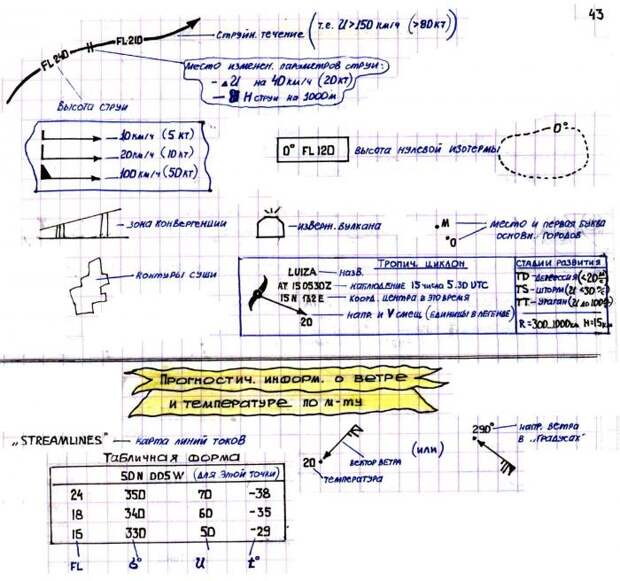 43
FL 240
FL 210
Струйн. течение (т.е. U > 150 км/ч (>80 кт)
Место изменен. параметров струи:
- ΔU на 40 км/ч (20 кт)
- H струи на 1000м
Высота струи
10 км/ч (5 кт)
20 км/ч (10 кт)
100 км/ч (50 кт)
0° FL 120
Высота нулевой изотермы
0°
зона конвергенции
изверж. вулкана
м
о
место и первая буква
основн. городов
контуры суши
Тропич. циклон
LUIZA — назв.
AT 150530Z — наблюдение 15 числа 5.30 UTC
15 N 132 E — коорд. центра в это время
20
напр. и V смещ (единицы в легенде)
Стадии развития
TD - депрессия (<20
TS - шторм (U <30
TT - ураган (U до 100
R = 300_1000км H=15км
Прогностич. информ. о ветре
и температуре по м-ту
„STREAMLINES" — карта линий токов
Табличная форма
50N 005W (для этой точки)
24 350 70 -38
18 340 60 -35
15 330 50 -29
FL δ° U t°
20
вектор ветра
температура
(или)
290°
напр. ветра
в „градусах"